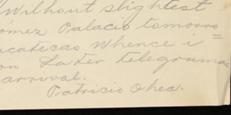 without slightest
omez Palacio tomorro=
acatecas whence i
on later telegrams
arrival.
Patricio Ohea.